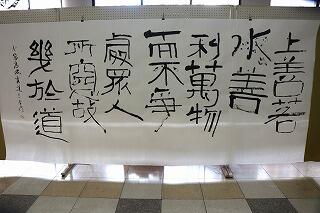 上善若
水善
利萬物
而不爭
處眾人
所惡故
幾於道